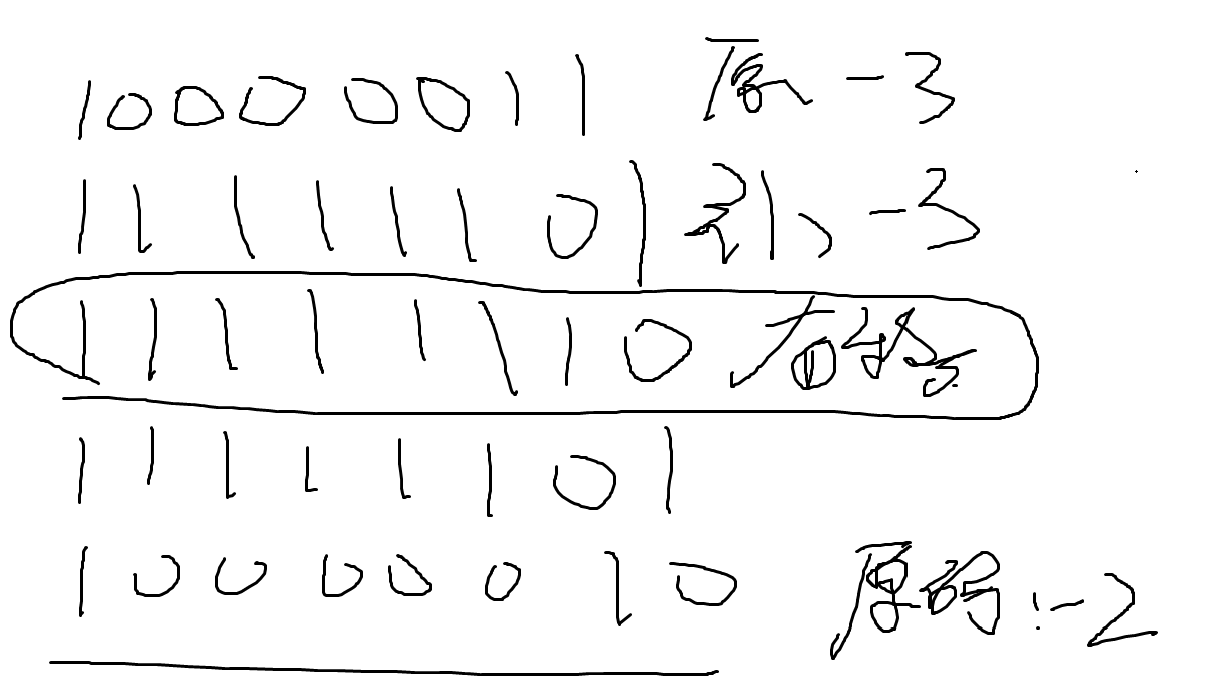 10000011 原 -3
11111101 补 -3
11111110 右移
11111101
10000010 原码:-2